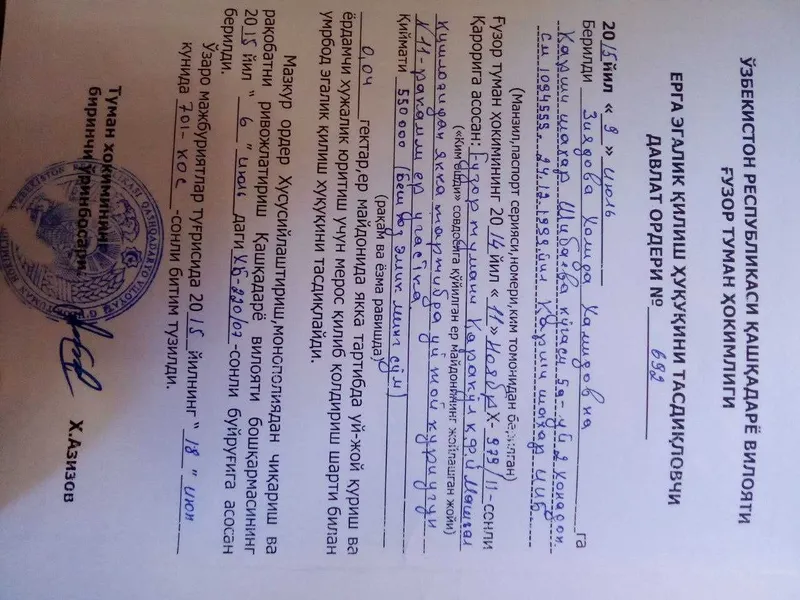 ЎЗБЕКИСТОН РЕСПУБЛИКАСИ ҚАШҚАДАРЁ ВИЛОЯТИ
ҒУЗОР ТУМАН ҲОКИМЛИГИ
ЕРГА ЭГАЛИК ҚИЛИШ ҲУҚУҚИНИ ТАСДИҚЛОВЧИ
ДАВЛАТ ОРДЕРИ № 692
2015 йил « 9 » июль
Берилди Зиядова Ҳамидовна га
Қарши шаҳар Шибаева кўчаси 59-уй 2 хонадон
24.12.1999 йил Қарши шаҳар ИИБ
(Манзил,паспорт серияси,номери,ким томонидан берилган)
Ғузор туман ҳокимининг 2014 йил « 11 » ноябрь Х- 979/11-сонли
Қарорига асосан: Ғузор тумани Қорақўл ҚФЙ
(«Ким ошди» савдосига қўйилган ер майдонининг жойлашган жойи)
қишлоғидан якка тартибда уй-жой қуриш учун
№11-рақамли ер участка
Қиймати 550 000 (Беш юз эллик минг сўм)
(рақам ва ёзма равишда)
0,04 гектар,ер майдонида якка тартибда уй-жой қуриш ва
ёрдамчи хужалик юритиш учун мерос қилиб қолдириш шарти билан
умрбод эгалик қилиш хуқуқини тасдиқлайди.
Мазкур ордер Хусусийлаштириш,монополиядан чиқариш ва
рақобатни ривожлатириш Қашқадарё вилояти бошқармасининг
2015 йил " 6 " июль даги ҚБ-220/07 -сонли буйруғига асосан
берилди.
Ўзаро мажбуриятлар туғрисида 2015 йилнинг " 18 " июн
кунида 701-КОС -сонли битим тузилди.
Туман ҳокимининг
биринчи ўринбосари
Х.Азизов